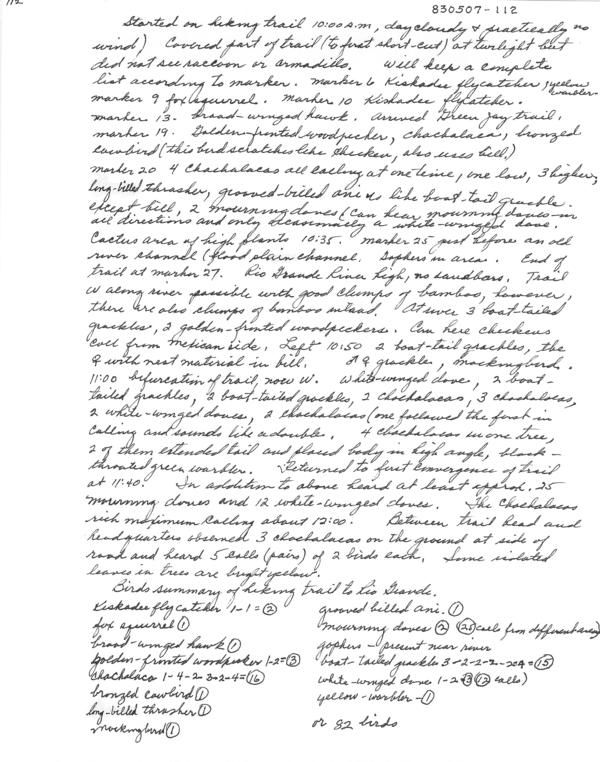 112
830507-112
Started on hiking trail 10:00 a.m, day cloudy & practically no
wind) Covered part of trail (to first short-cut) at twilight but
did not see raccoon or armadillo. Will keep a complete
list according to marker. marker 6 Kiskadee flycatcher, yellow warbler-
marker 9 fox squirrel. Marker 10 Kiskadee flycatcher.
marker 13. broad-winged hawk. arrived Green Jay trail.
marker 19. Golden-fronted woodpecker, chachalaca, bronzed
cowbird (this bird scratches like chicken, also uses bill.)
marker 20 4 chachalacas all calling at one time, one low, 3 higher,
long-billed thrasher, grooved-billed ani is like boat-tail grackle.
except bill, 2 mourning doves (Can hear mourning doves in
all directions and only occasionally a white-winged dove.
Cactus area of high plants 10:35. marker 25 just before an old
river channel (flood plain channel. Gophers in area. End of
trail at marker 27. Rio Grande River high, no sandbars. Trail
W along river possible with good clumps of bamboo, however,
there are also clumps of bamboo inland. At river 3 boat-tailed
grackles, 2 golden-fronted woodpeckers. Can here chickens
call from Mexican side. Left 10:50 2 boat-tail grackles, the
♀ with nest material in bill. ♂ ♀ grackle, mockingbird.
11:00 bifurcation of trail, now W. White-winged dove, 2 boat-
tailed grackles, 2 boat-tailed grackles, 2 chachalacas, 3 chachalacas,
2 white-winged doves, 2 chachalacas (one followed the first in
calling and sounds like a double. 4 chachalacas in one tree,
2 of them extended tail and placed body in high angle, black-
throated green warbler. Returned to first convergence of trail
at 11:40. In addition to above heard at least approx. 25
mourning doves and 12 white-winged doves. The chachalacas
rich maximum calling about 12:00. Between trail head and
headquarters observed 3 chachalacas on the ground at side of
road and heard 5 calls (pairs) of 2 birds each. Some isolated
leaves in trees are bright yellow.
Birds summary of hiking trail to Rio Grande.
Kiskadee flycatcher 1-1= 2
fox squirrel 1
broad-winged hawk 1
golden-fronted woodpecker 1-2= 3
chachalaca 1-4-2-3-2-4= 16
bronzed cowbird 1
long-billed thrasher 1
mockingbird 1
grooved billed ani. 1
mourning doves 2 25 calls from different areas)
gophers - present near river
boat-tailed grackle 3-2-2-2- = 15
white-winged dove 1-2= 3 12 calls)
yellow-warbler- 1
or 82 birds